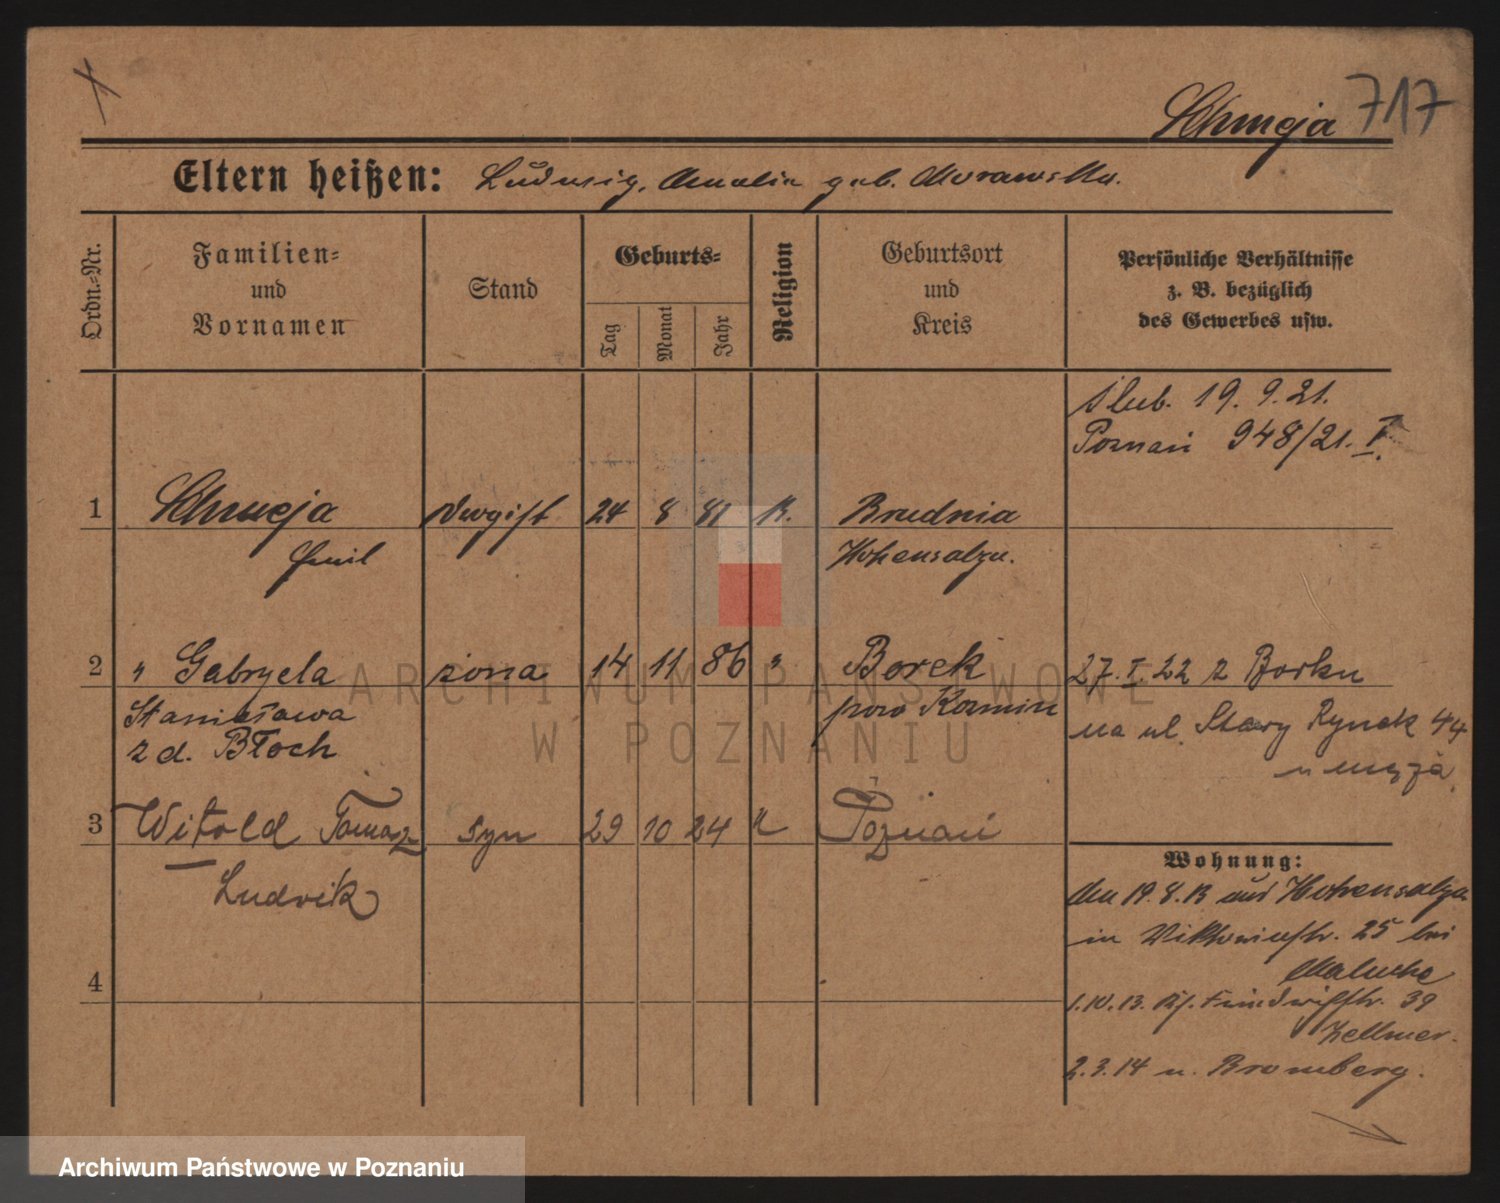 Chmeja 717
Eltern heißen: Ludwig, Amalia geb. Morawska.
Ordn.-Nr.
Familien-
und
Vornamen
Stand
Geburts-
Tag
Monat
Jahr
Religion
Geburtsort
und
Kreis
Persönliche Verhältnisse
z. B. bezüglich
des Gewerbes usw.
ślub. 19. 9. 21.
Poznań 948/21. I.
1 Chmeja 24 8 81 K. Brudnia
Emil Hohensalza.
2 " Gabryela żona 14 11 86 " Borek 27. I. 22 z Borku
Stanisława pow Koźmin na ul. Stary Rynek 44
z d. Błoch u męża
3 Witold Tomasz syn 29 10 24 K Poznań
Ludwik
Wohnung:
den 19.8.13 aus Hohensalza
in Viktoriastr. 25 bei
Malucha
1.10.13. 39
Zellmer.
4
2.3.14 n. Bromberg.
ARCHIWUM PAŃSTWOWE
W POZNANIU
Archiwum Państwowe w Poznaniu